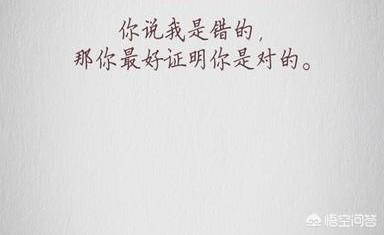 你说我是错的，
那你最好证明你是对的。
悟空问答